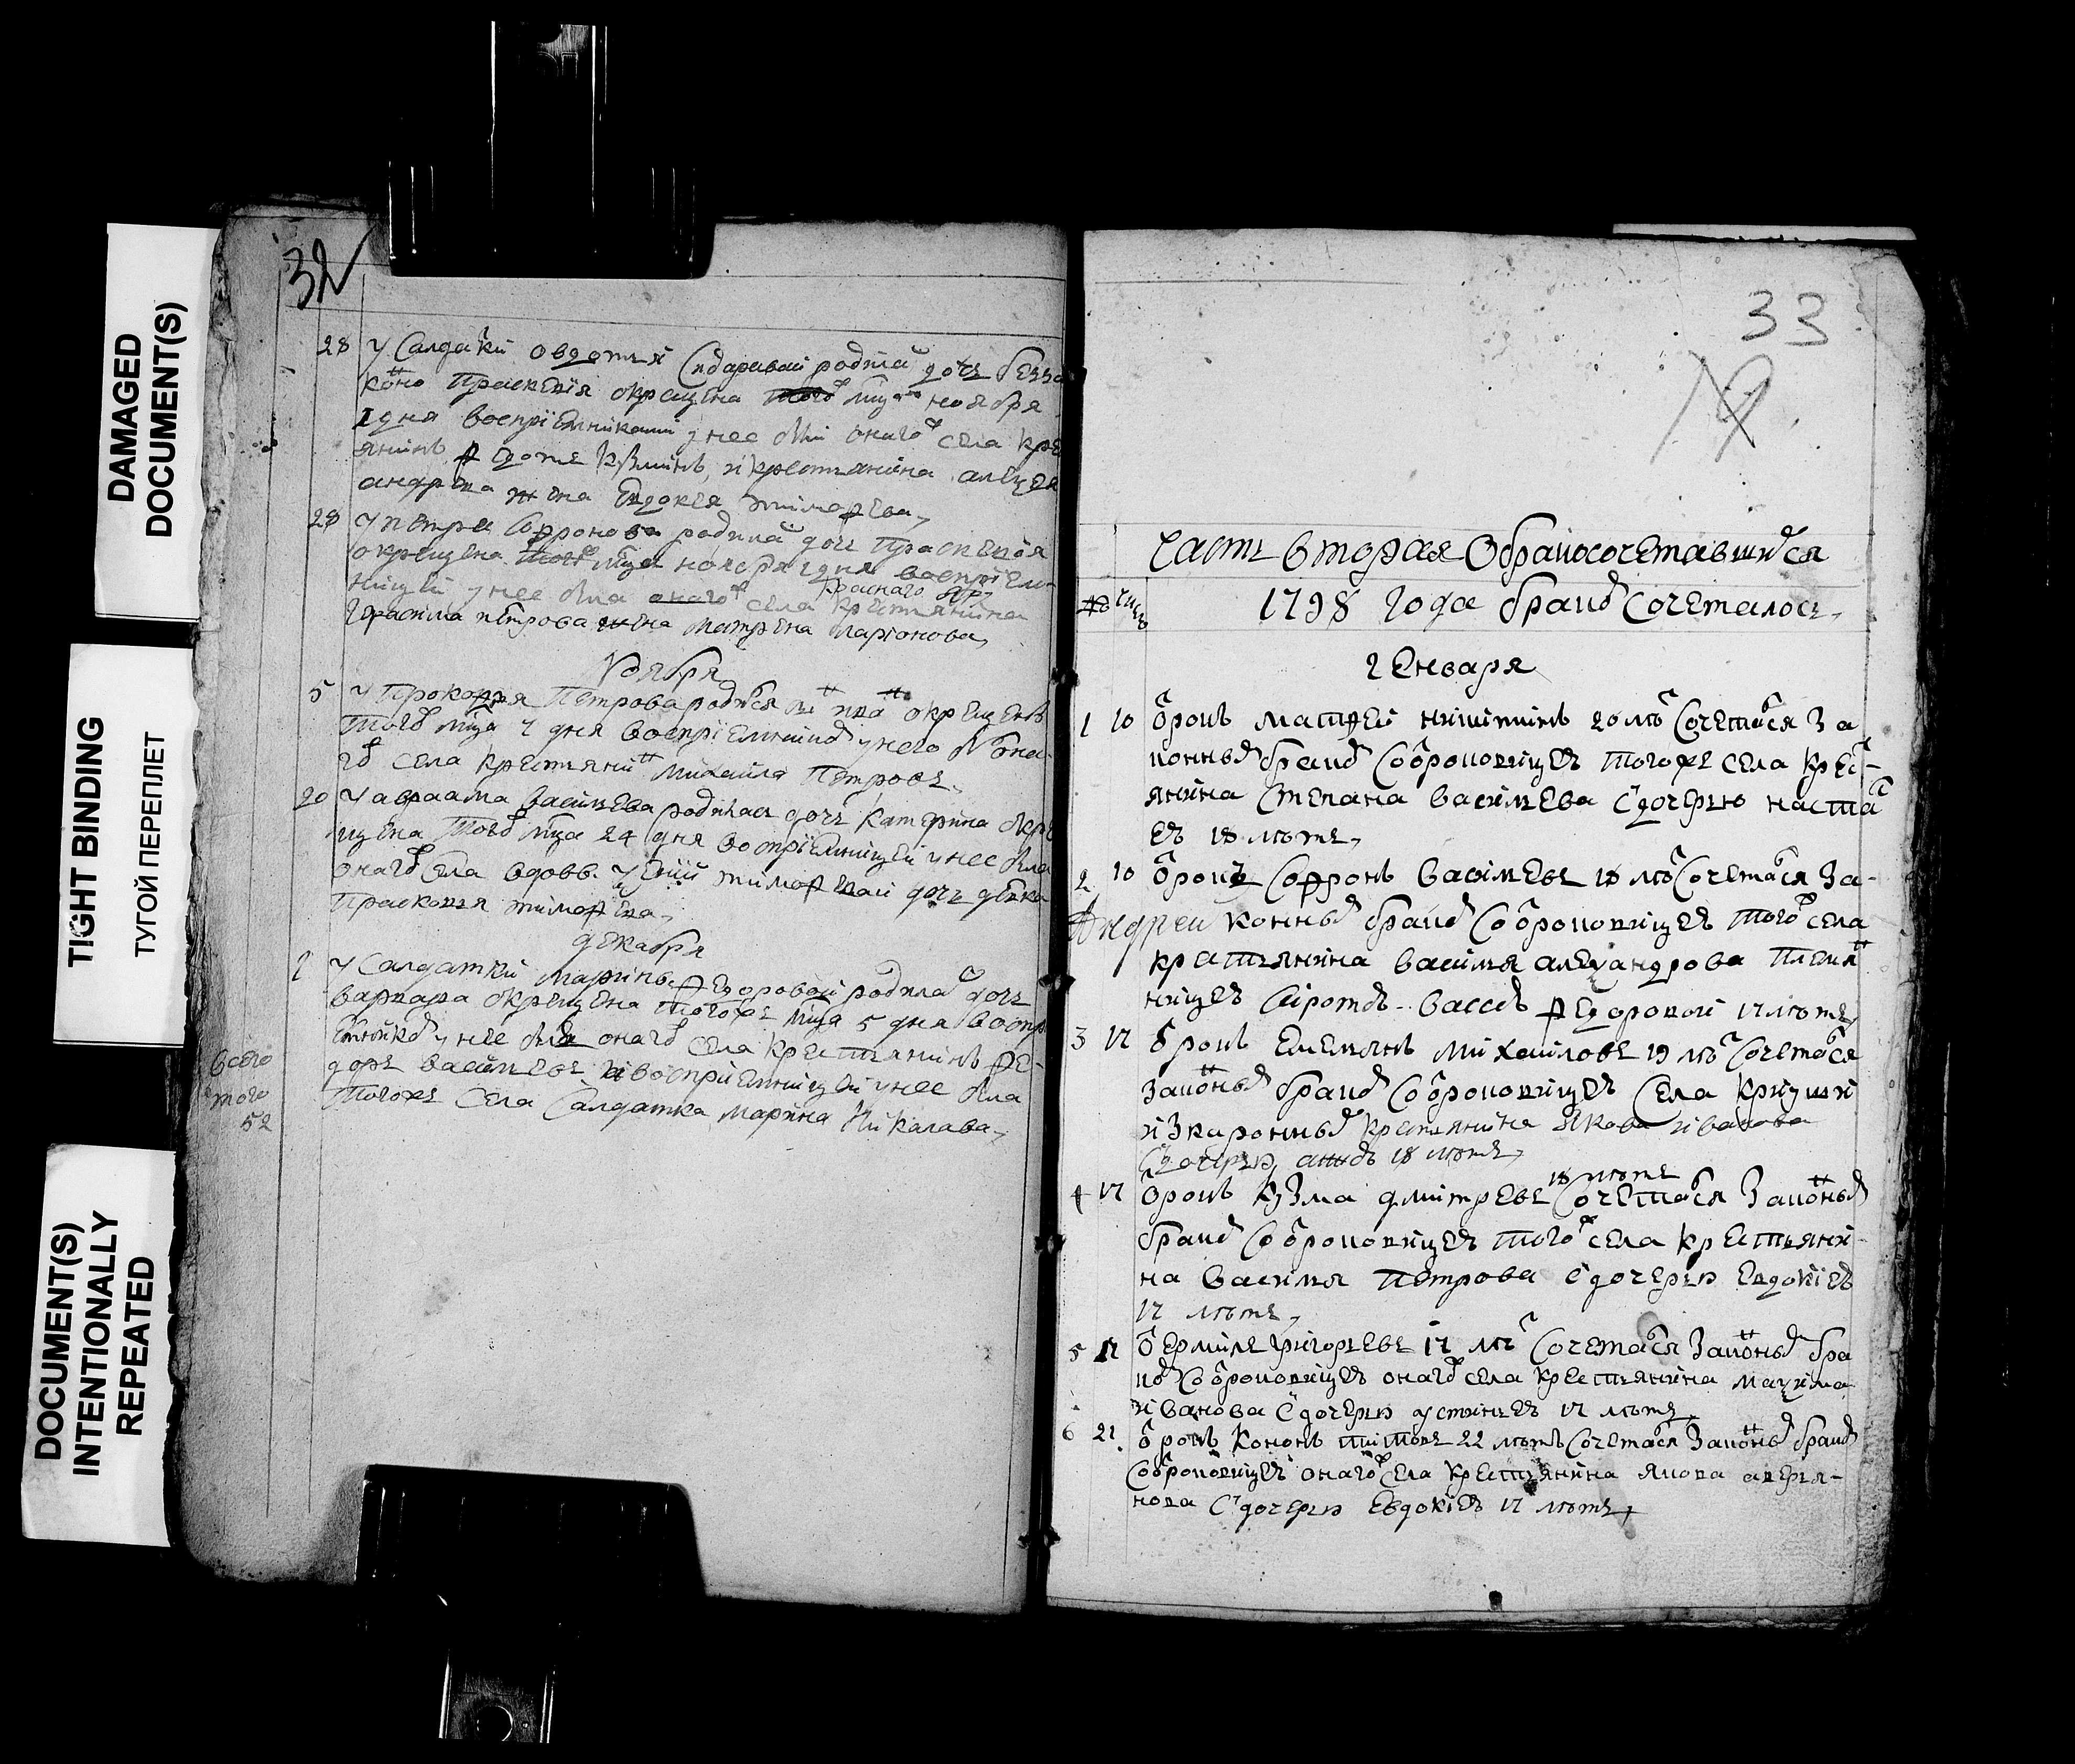 DAMAGED
DOCUMENT(S)
TIGHT BINDING
ТУГОЙ ПЕРЕПЛЕТ
DOCUMENT(S)
INTENTIONALLY
REPEATED
32
28 У Салдаки Овдотьи Сидаравай родила дочь безза
коно Праскевiя окрещена того мца ноября
1 дня воспрiемниками у нее были онаго села кре
янинъ Федотъ Кузминъ, и крестьянина алеѯя
андрева жена Евдокея тимофева,
28 У петра Софронова родила дочь Праскевiя
окрещена того мца ноября 1 дня воспрiем
ницей у нее была онаго села крестьянина
Краснаго яр
Герасима петрова жена матрена ларiонова,
Ноября
5 У Прокофья Петрова родися окрещенъ
того мца 7 дня воспрiемникъ у него бы она
го села крестьяни михаила Петровъ,
20 У авраама Васильева родилась дочь Катерина окре
щена того мца 24 дня воспрiемницей у нее была
онаго села вдовы тимофевай дочь девка
Прасковья тимофева,
декабря
1 У Салдатки Марины Федоровой родила дочь
варвара окрещена того же мца 5 дня воспр
емникъ у нее была онаго села крестьянинъ Фе-
доръ васильевъ и воспрiемницей у нее была
того же села Салдатка марина Никалава,
всего
того
52
33
Часть вторая О бракосочетавшихся
число
1798 года браком Сочеталось,
Генваря
1 10 отрокъ матфей никитинъ 20 летъ Сочетался За
конным браком Со отроковицею того же села крест-
янина Степана васильева с дочерью наста
ею 18 летъ,
2 10 отрокъ Софронъ васильевъ 18 летъ Сочетался За-
Андреи конным браком Со отроковицею того села
крестьянина василья алеѯандрова племян
ницею сиротою вассою федоровой 17 летъ,
3 17 отрокъ Емельянъ михаиловъ 19 летъ Сочетался
Законым браком Со отроковицею Села криуши
и Экароммым крестьянина Якова иванова
с дочерью 18 летъ,
18 летъ
4 17 отрокъ Кузма дмитревъ Сочетался Законым
браком Со отроковицею того села крестьяни-
на василья Петрова с дочерью Евдокiею
17 летъ,
5 17 о Ермилъ Григорьевъ 17 летъ Сочетался Законым бра
ком Со отроковицею онаго села крестьянина маѯима
иванова с дочерью устиньею 17 летъ
6 21 отрокъ Кононъ титовъ 22 летъ Сочетался Законым браком
Со отроковицеи онаго села крестьянина якова аверья-
нова с дочерью Евдокiею 17 летъ,